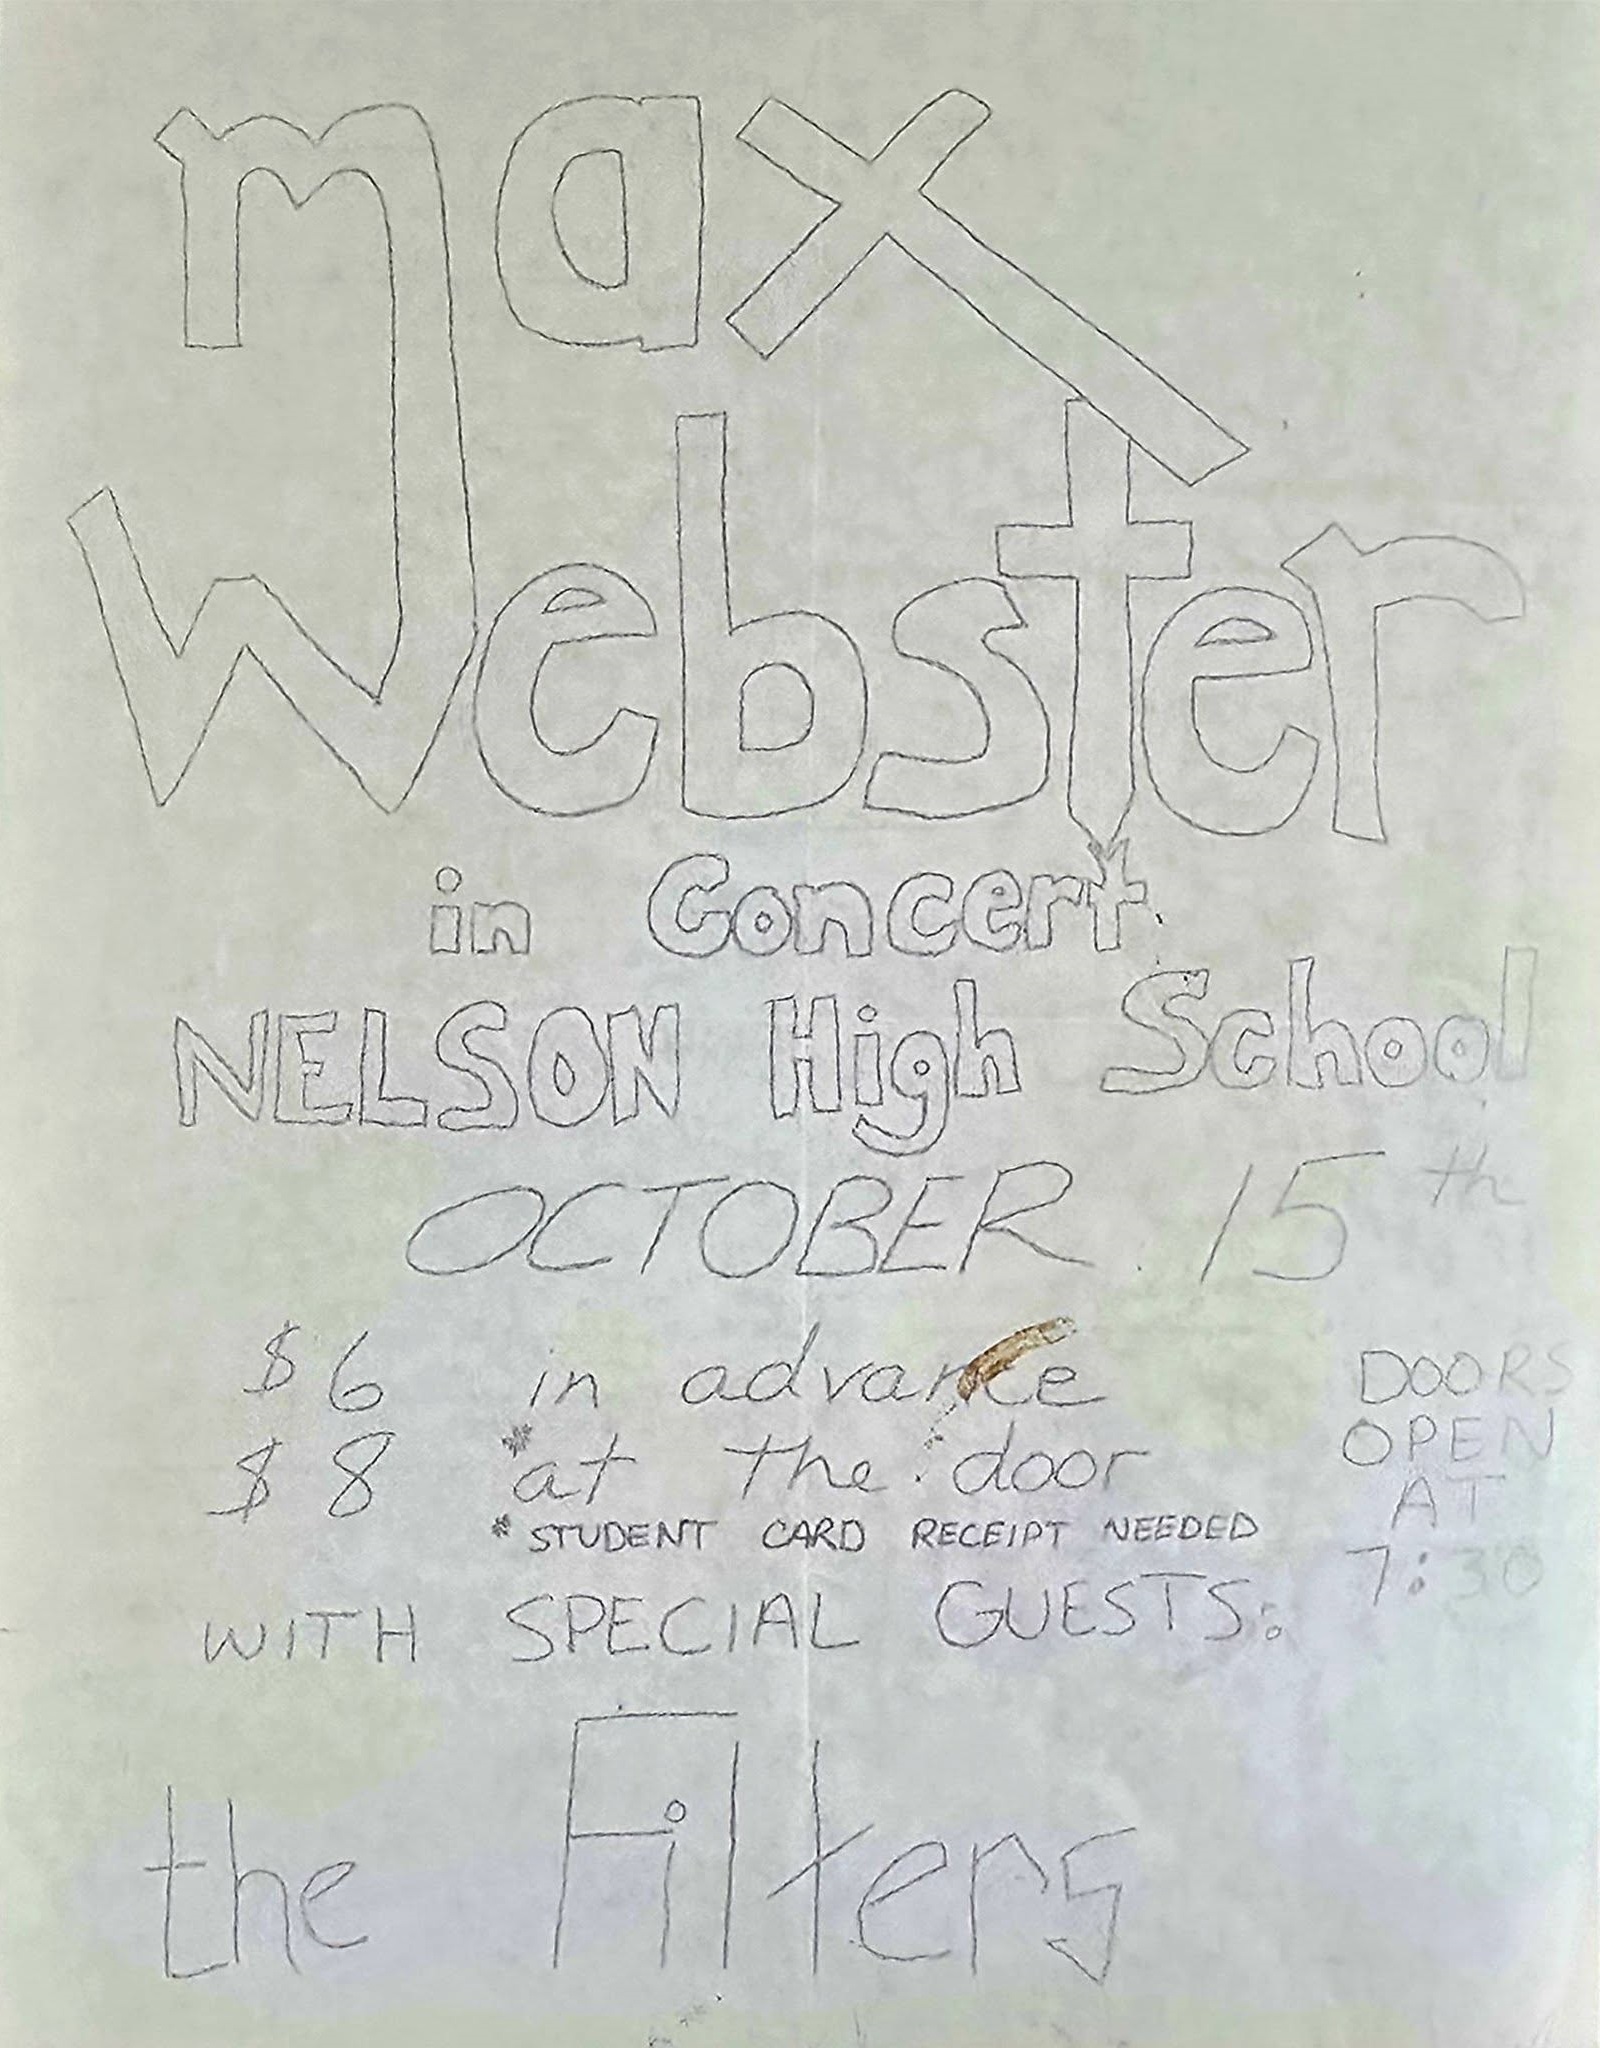 max
Webster
in Concert
NELSON High School
OCTOBER 15th
$6 in advance
$8 *at the door
* STUDENT CARD RECEIPT NEEDED
DOORS
OPEN
AT
7:30
WITH SPECIAL GUESTS:
the Filters